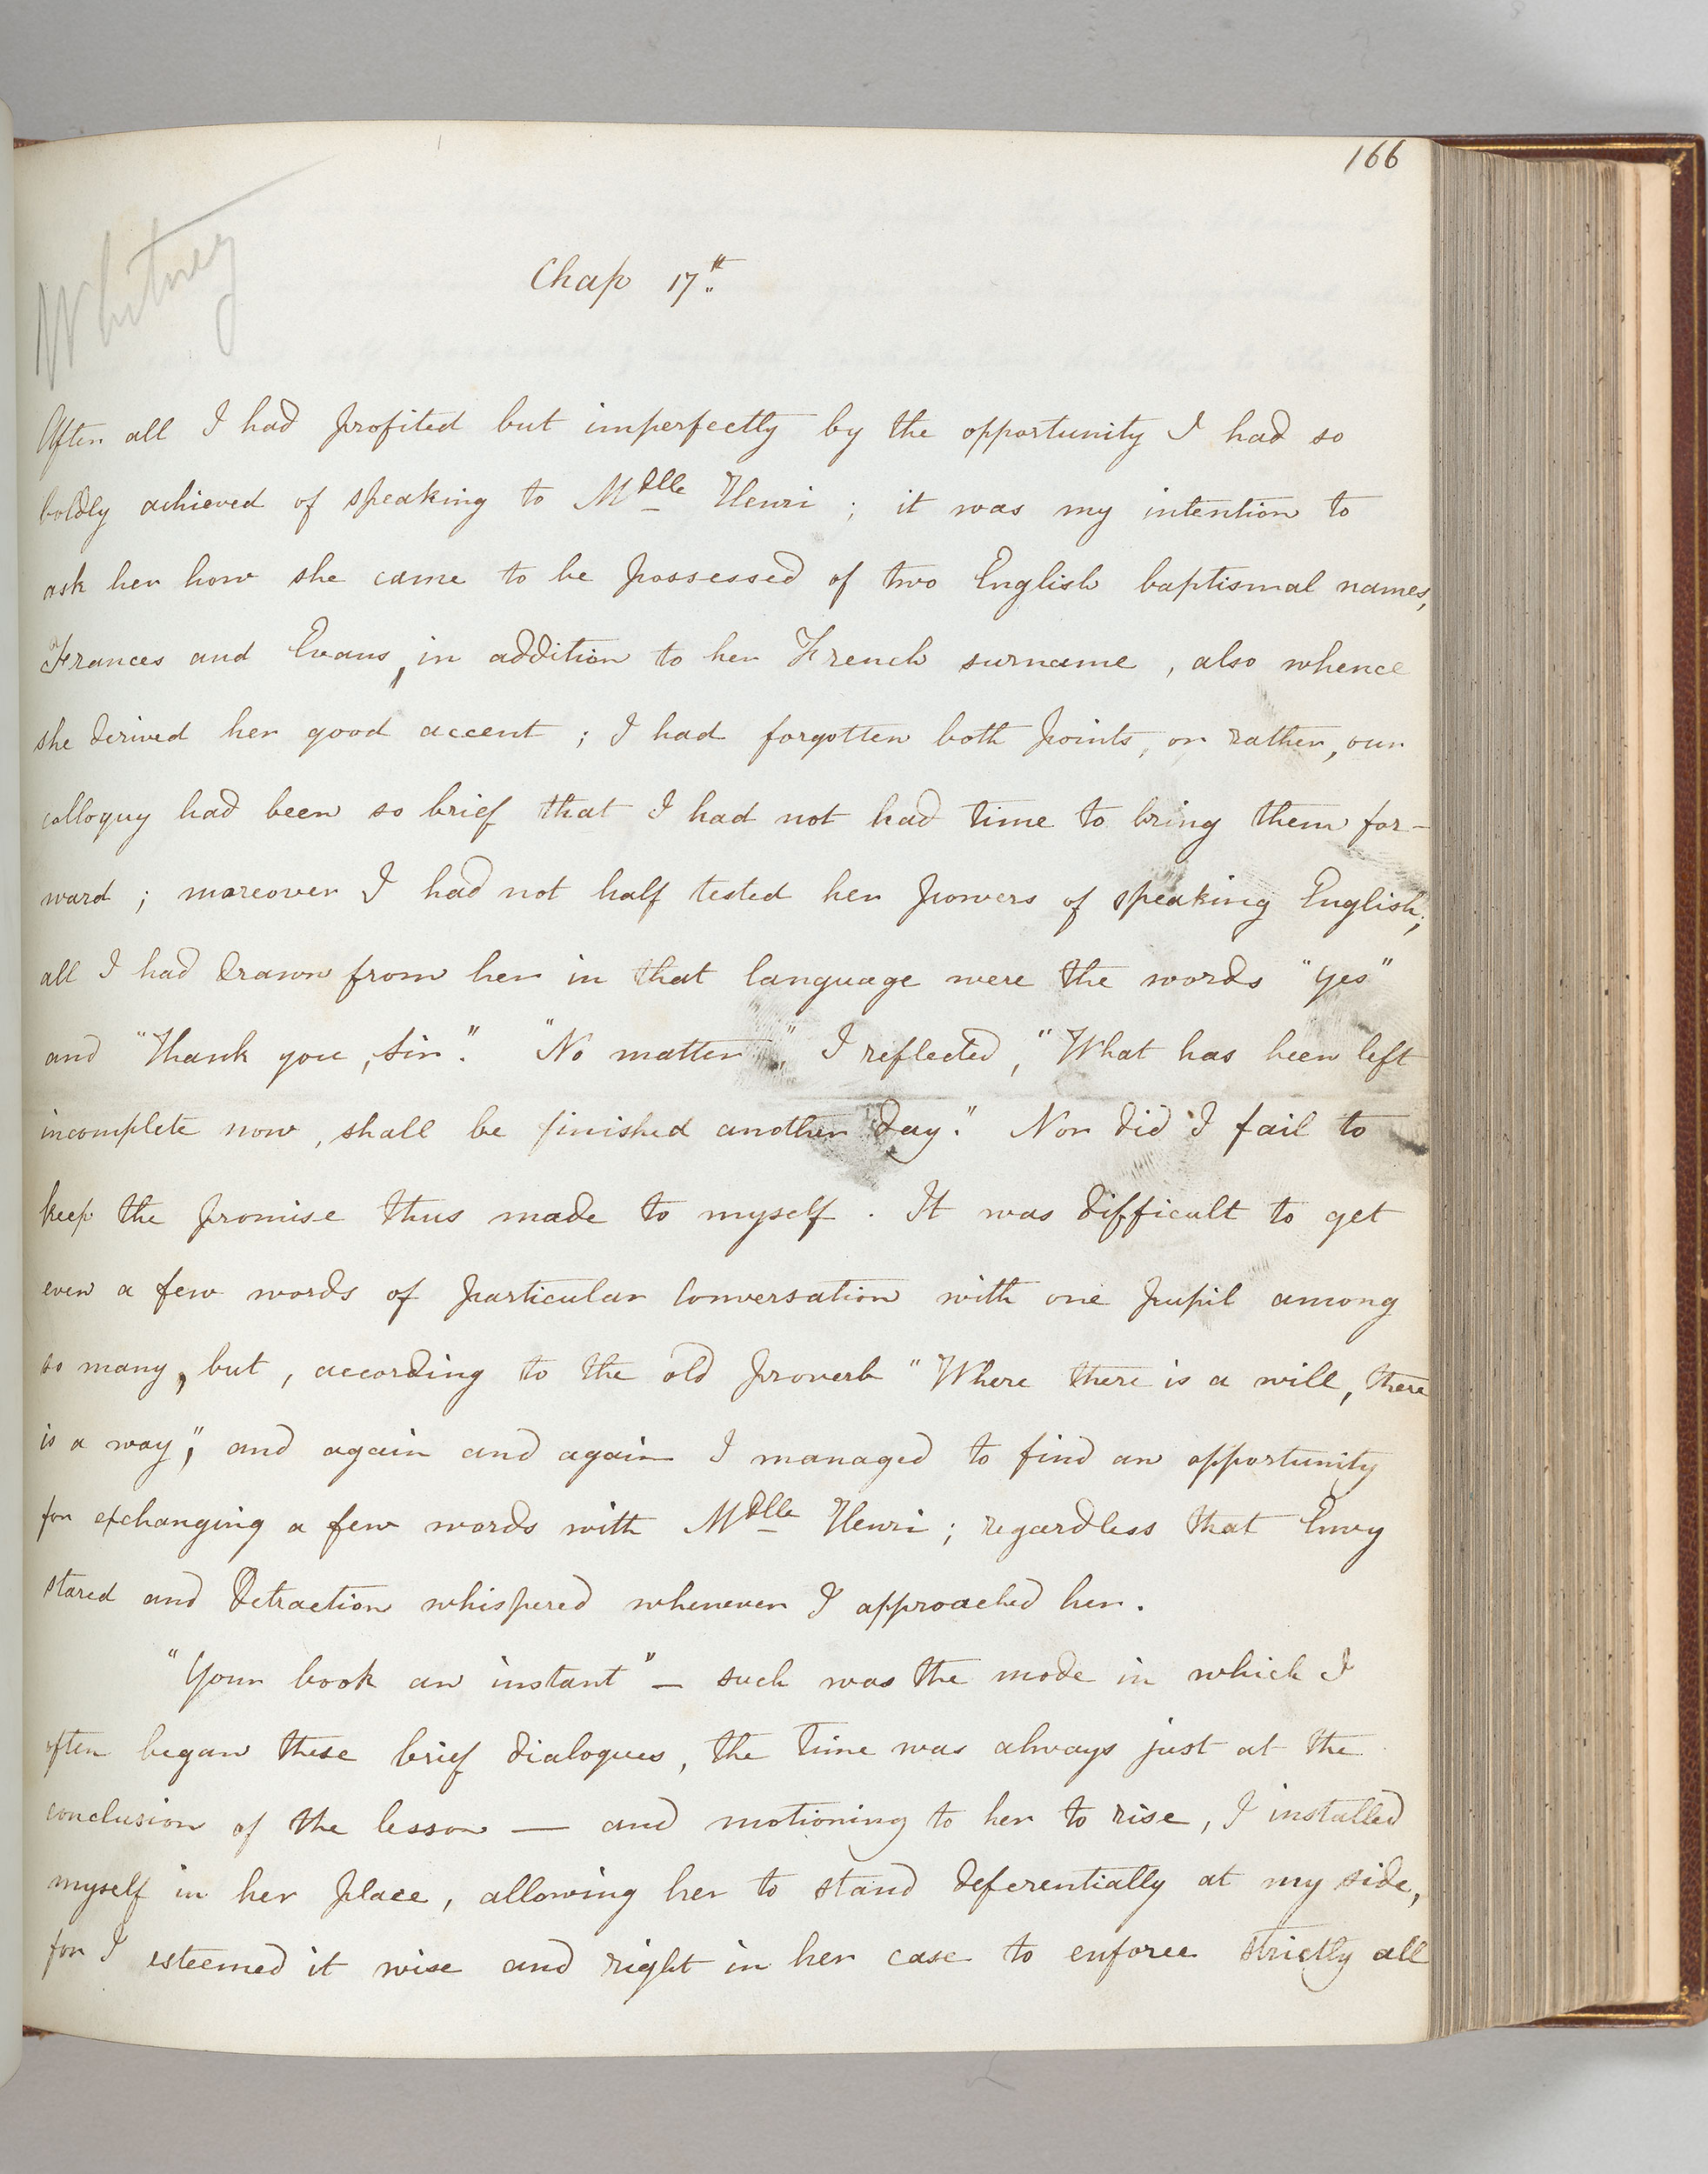 166
Whitney
Chap 17th
After all I had profited but imperfectly by the opportunity I had so
boldly achieved of speaking to Mdlle Henri ; it was my intention to
ask her how she came to be possessed of two English baptismal names,
Frances and Evans, in addition to her French surname, also whence
she derived her good accent ; I had forgotten both points, or rather, our
colloquy had been so brief that I had not had time to bring them for-
ward ; moreover I had not half tested her powers of speaking English;
all I had drawn from her in that language were the words "yes"
and "Thank you, Sir." "No matter," I reflected, "What has been left
incomplete now, shall be finished another day." Nor did I fail to
keep the promise thus made to myself. It was difficult to get
even a few words of particular conversation with one pupil among
so many, but, according to the old proverb "Where there is a will, there
is a way," and again and again I managed to find an opportunity
for exchanging a few words with Mdlle Henri ; regardless that Envy
stared and Detraction whispered whenever I approached her.
"Your book an instant" — such was the mode in which I
often began these brief dialogues, the time was always just at the
conclusion of the lesson — and motioning to her to rise, I installed
myself in her place, allowing her to stand deferentially at my side,
for I esteemed it wise and right in her case to enforce strictly all